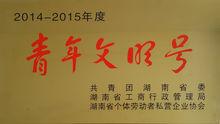 2014-2015年度
青年文明号
共青团湖南省委
湖南省工商行政管理局
湖南省个体劳动者私营企业协会